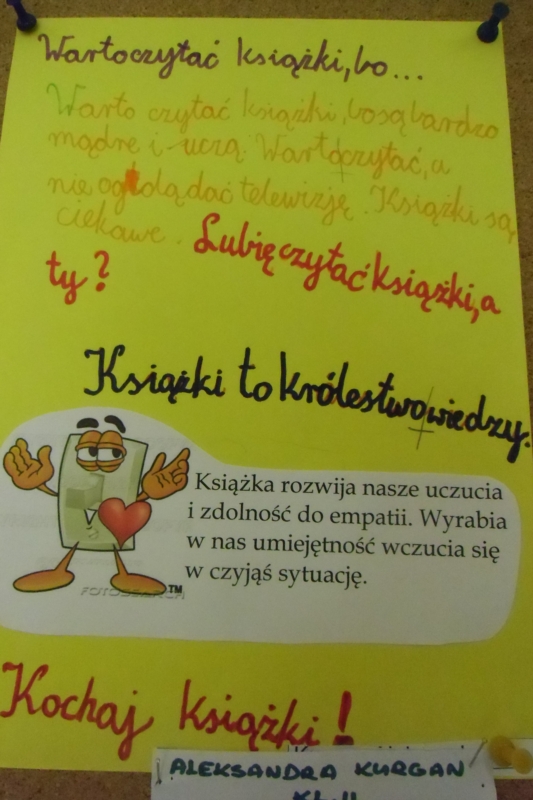 Warto czytać książki, bo...
Warto czytać książki, bo są bardzo
mądre i uczą. Warto czytać, a
nie oglądać telewizję. Książki są
ciekawe. Lubię czytać książki, a
ty?
Książki to królestwo wiedzy.
Książka rozwija nasze uczucia
i zdolność do empatii. Wyrabia
w nas umiejętność wczucia się
w czyjąś sytuację.
FOTOSEARCH TM
Kochaj książki!
ALEKSANDRA KURGAN